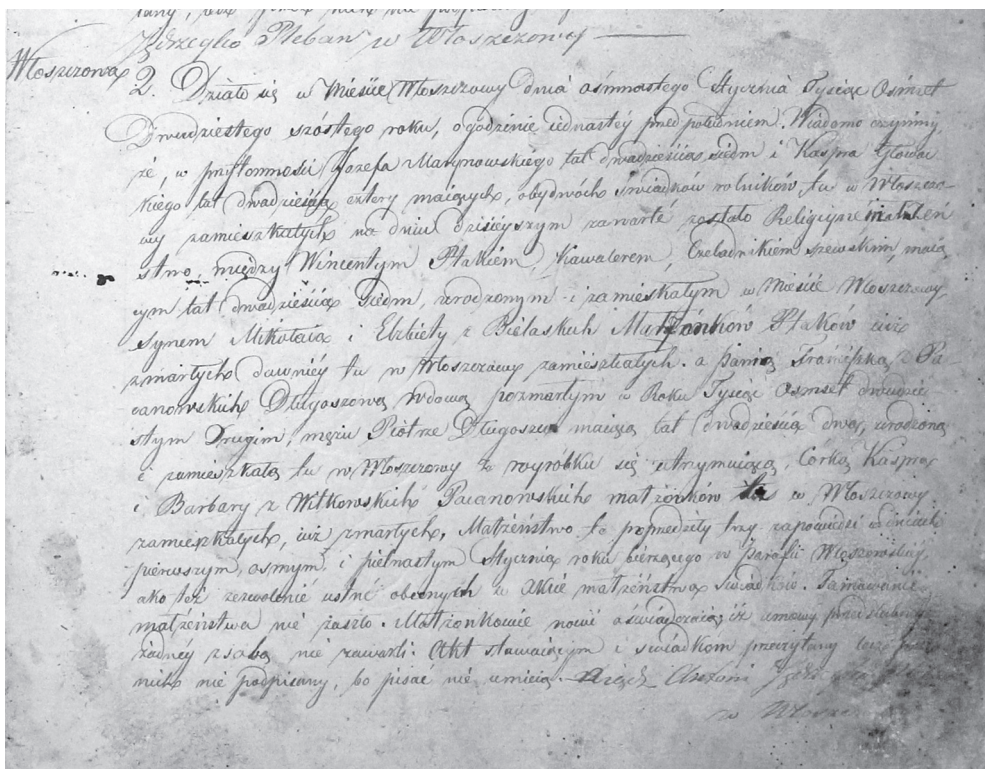 Plebań w Włoszczowy
Włoszczowa
2. Działo się w Mieście Włoszczowy dnia ośmnastego Stycznia Tysiąc Ośmset
Dwudziestego szóstego roku, o godzinie iednastey przed południem. Wiadomo czynimy
że, w przytomności Jozefa Marynowskiego lat dwadzieścia siedm i Kaspra Głowac
kiego lat dwadzieścia cztery maiących, obydwóch świadków rolników, tu w Włoszczo-
wy zamieszkałych na dniu dzisieyszym zawarte zostało Religiyne małżeń
stwo, między Wincentym Ptakiem, Kawalerem, Czeladnikiem szewskim, maią
cym lat dwadzieścia siedm, urodzonym i zamieskałym w Mieście Włoszczowy
synem Mikołaia i Elzbiety z Bielaskich Małżonków Ptaków iuż
zmarłych dawniéy tu w Włoszczowy zamieszkałych. a Panią Franciszką z Pa
ianowskich Długoszową wdową pozmarłym w Roku Tysiąc Osmset dwudzie
stym Drugim, mężu Piotrze Długoszu maiącą lat dwadzieścia dwa, urodzoną
i zamieszkałą tu w Włoszczowy z wyrobku się utrzymuiącą, Córką Kaspra
i Barbary z Witkowskich Paianowskich małżonków w Włoszczowy
zamieszkałych, iuż zmarłych. Małżeństwo to poprzedziły trzy zapowiedzi w dniach
pierwszym, osmym i pietnastym Stycznia roku bierzącego w Parafii Włoszowskiéj,
ako też zezwolenie ustne obecnych w Akcie małżeństwa świadków. Tamowanie
małżeństwa nie zaszło. Małżonkowie nowi oświadczaią iż umowy przedślubnéj
żadnéy z sobą nie zawarli. Akt stawaiącym i świadkom przeczytany
nich nie podpisany, bo pisać nie umieią. Xiądz Antoni
w